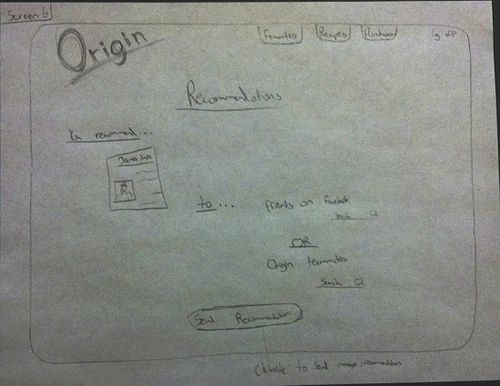 Screen 6
Origin
Favorites
Recipes
Purchases
log off
Recommendations
You recommend...
to...
friends on Facebook
Search
OR
Origin teammates
Search
Send Recommendation
Clickable to send